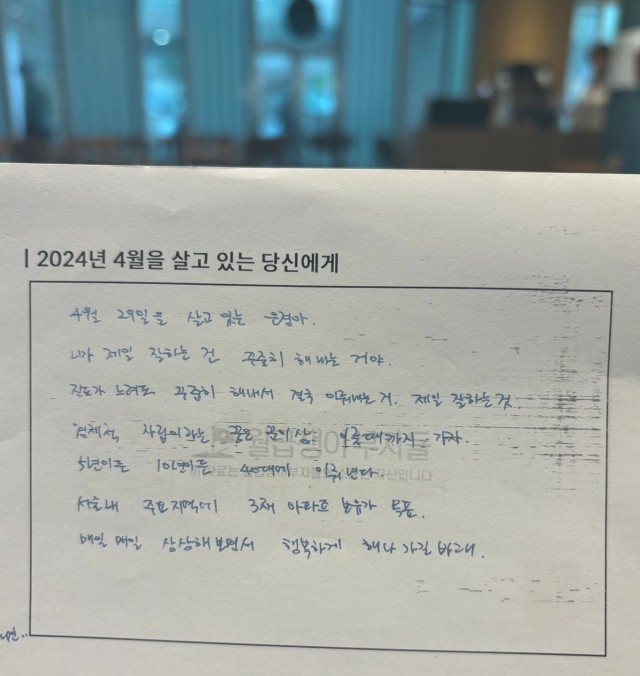 2024년 4월을 살고 있는 당신에게
4월 29일을 살고 있는 은겸아.
니가 제일 잘하는 건 꾸준히 해내는 거야.
진도가 느려도 꾸준히 해내서 결국 이뤄내는 거. 제일 잘하는 것.
경제적 자립이라는 꿈을 꿈이상 이룰때까지 가자.
월급쟁이부자들
5년이든 10년이든 40대에 이뤄낸다.
자산입니다
서울내 주요지역에 3채 아파트 보유가 목표.
매일 매일 상상해보면서 행복하게 해나가길 바래.